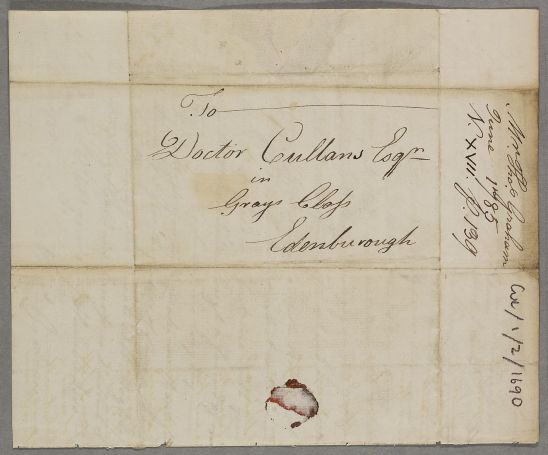 To
Doctor Cullans Esqr
in
Grays Closs
Edenburough
Mr Tho.s Graham
June 1785
N. XVIII. p. 139
Cul/1/2/1690